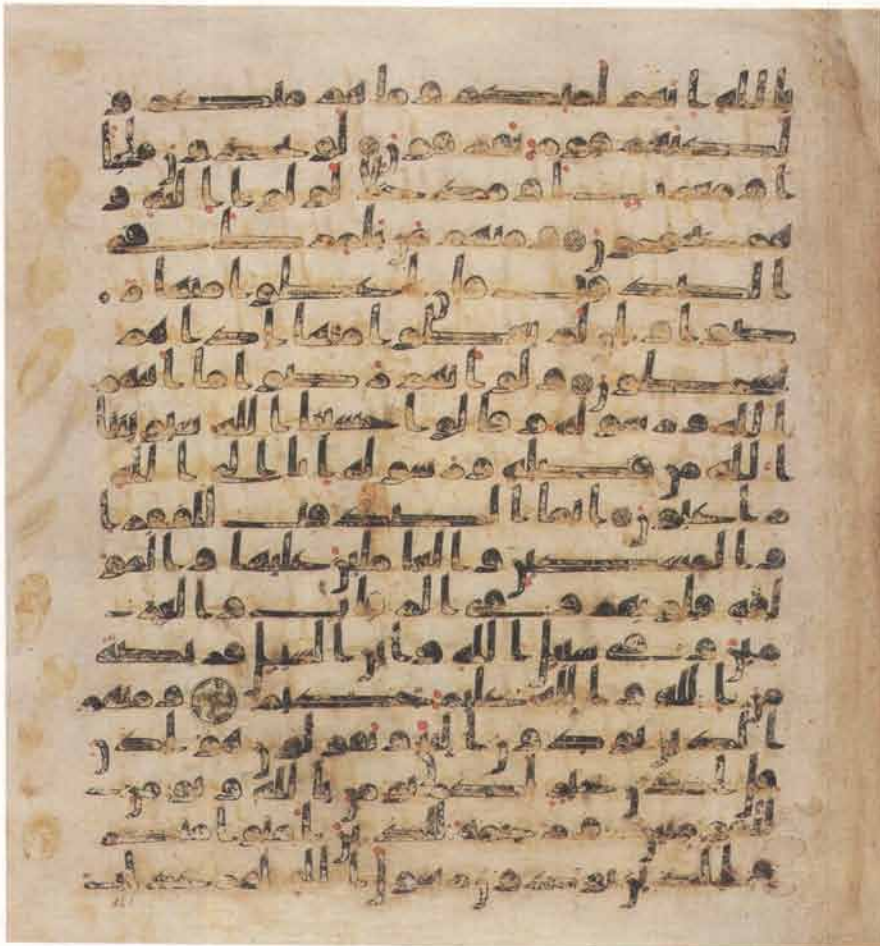 بالله انهم لمنكم وما هم منكم و
لكنهم قوم يفرقون لو يجدون ملجا
او مغرت او مدخلا لولوا اليه و
هم يجمحون ومنهم من يلمزك في
الصدقت فان اعطوا منها ر
ضوا وان لم يعطوا منها اذا هم
يسخطون ولو انهم رضوا ما اتيهم
الله ورسوله وقالوا حسبنا الله سيوتينا
الله من فضله ورسوله انا الى الله
رغبون انما الصدقت للفقرا
والمسكين والعملين عليها والمو
لفة قلوبهم وفي الرقاب والغر
مين وفي سبيل الله وابن السبيل فريضة
من الله والله عليم حكيم ومنهم
الذين يوذون النبي ويقولون هو اذن
قل اذن خير لكم يومن بالله ويومن
للمومنين ورحمة للذين امنوا منكم
والذين يوذون رسول الله لهم